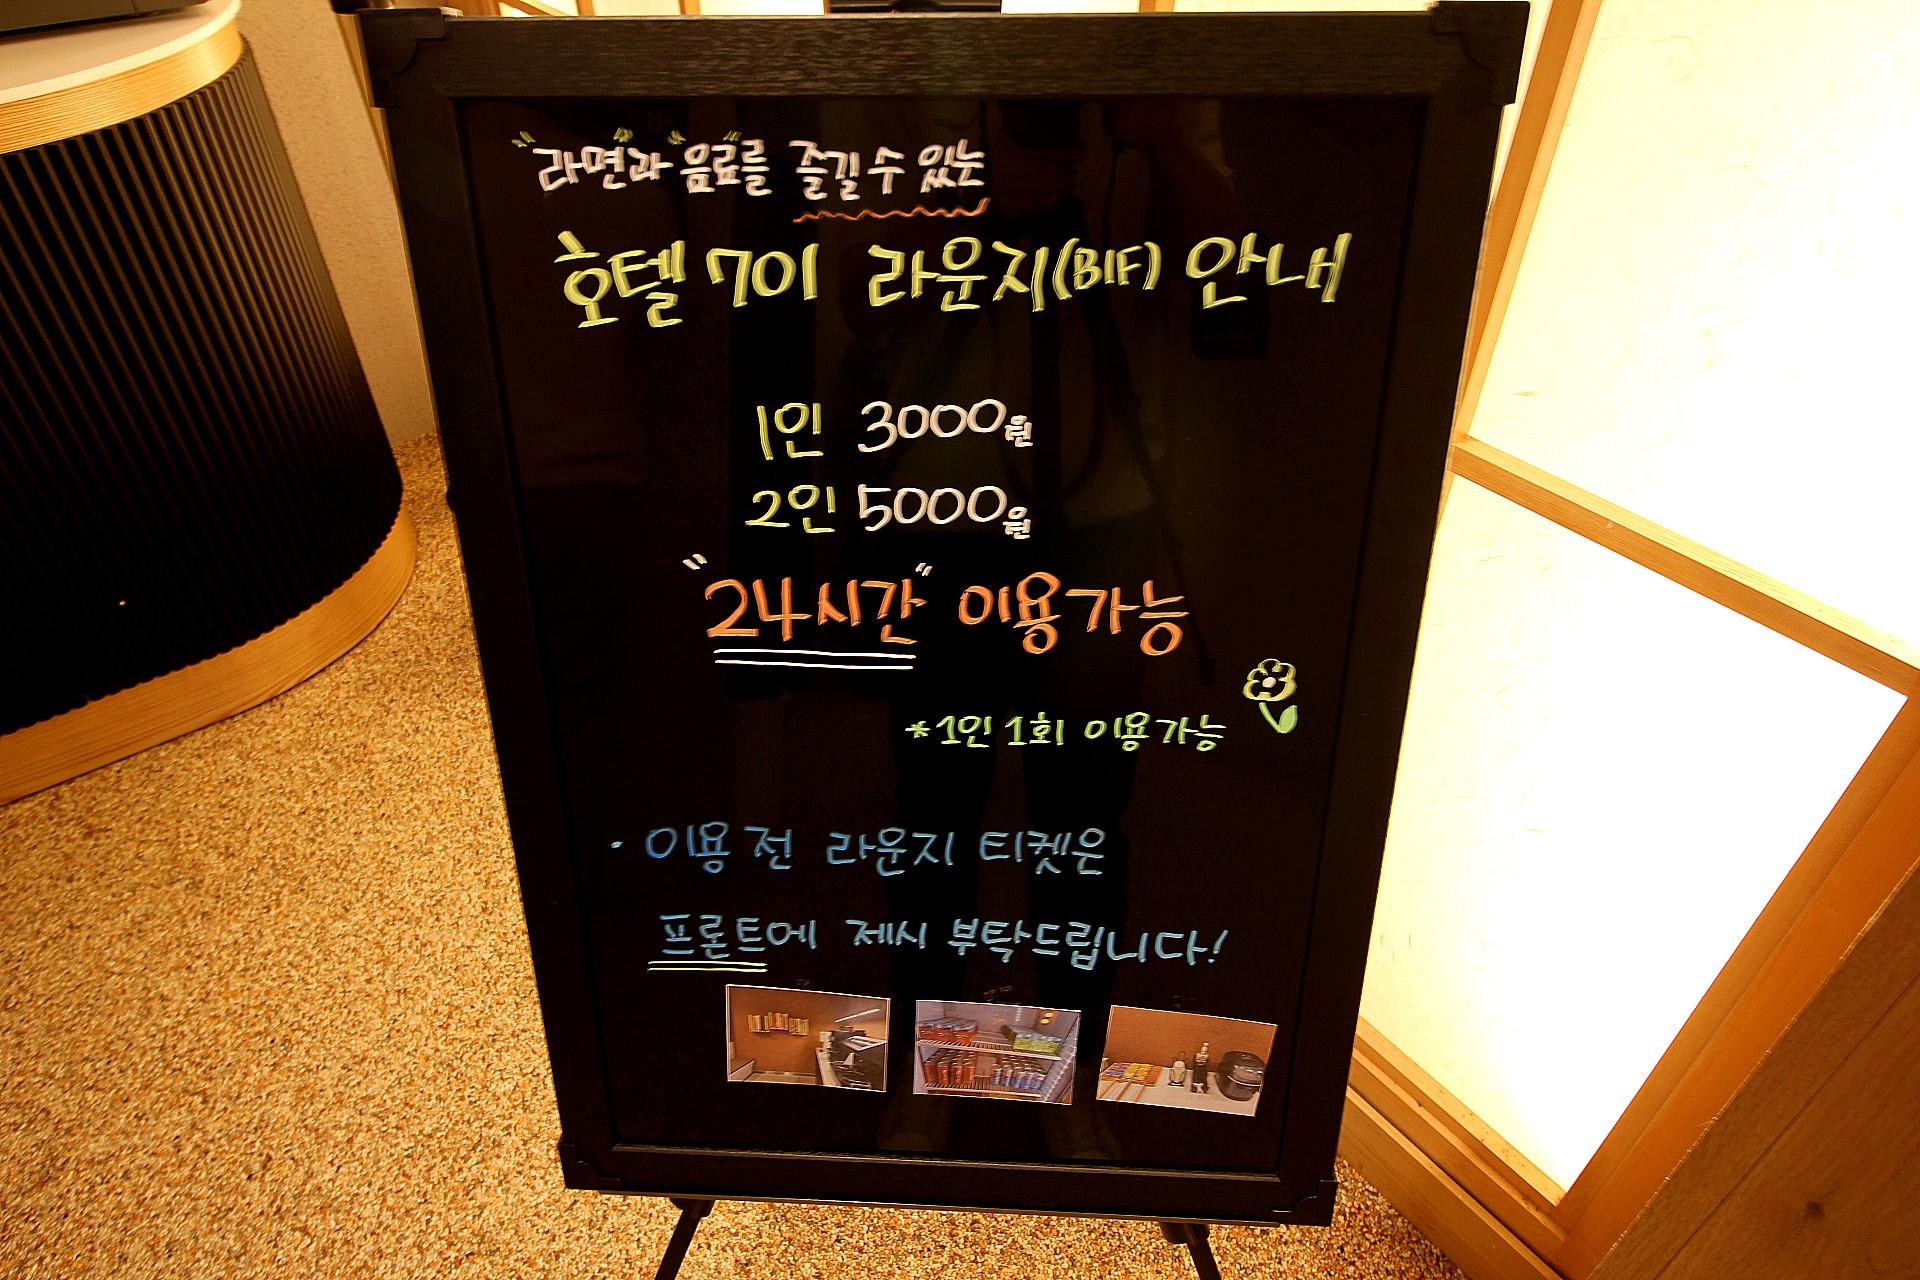 "라면"과 "음료"를 즐길 수 있는
호텔 701 라운지(B1F) 안내
1인 3000원
2인 5000원
"24시간" 이용가능
*1인 1회 이용가능
· 이용 전 라운지 티켓은
프론트에 제시 부탁드립니다!